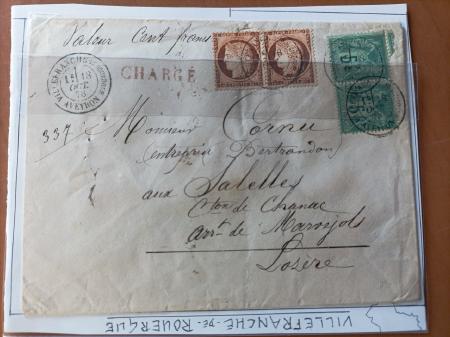 Valeur Cent francs
CHARGÉ
18
OCT
76
AVEYRON
5
337
Monsieur Cornu
(entreprise Bertrandon)
aux Salelles
Cton de Chanac
arrt de Marvejols
Lozère
VILLEFRANCHE-DE-ROUERGUE